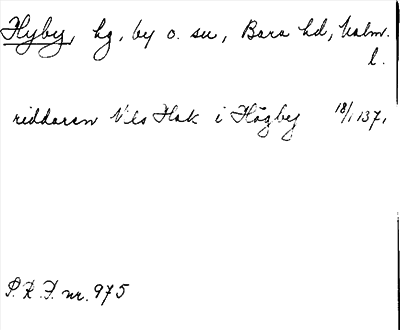 Hyby, hg, by o. su, Bara hd, Malm.
l.
riddaren Nils Hak i Högby 18/1 1371
P.R.F. nr. 975